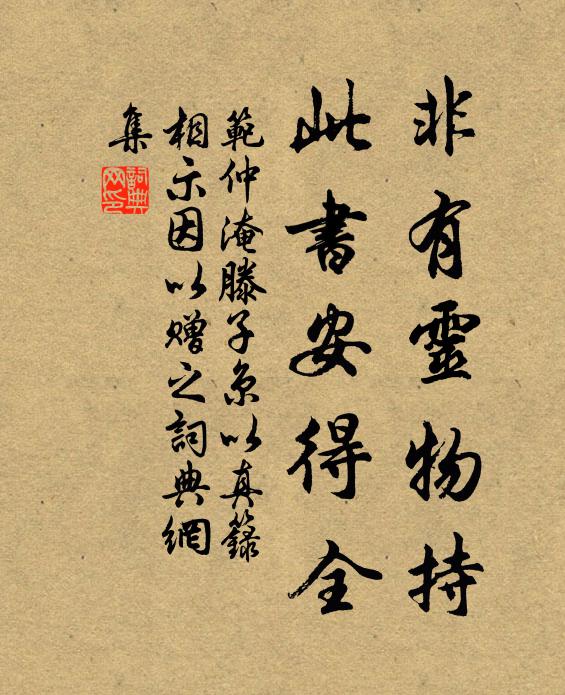 非有靈物持
此書安得全
範仲淹滕子京以真籙
相示因以贈之詞典網
集
詞典網印